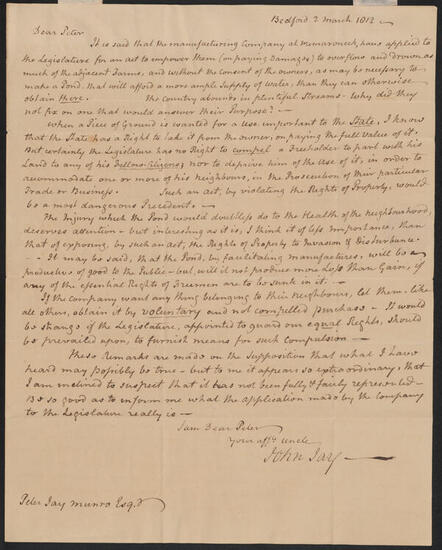 Bedford 2 March 1812 —
Dear Peter
It is said that the manufacturing Company at Mamaroneck, have applied to
the Legislature for an act to empower them (on paying Damages) to overflow and drown as
much of the adjacent Farms, and without the consent of the owners, as may be necessary to
make a Pond that will afford a more ample Supply of water, than they can otherwise
obtain there. The country abounds in plentiful Streams – why did they
not fix on one that would answer their Purpose? —
When a Piece of Ground is wanted for a use important to the State, I know
that the State has a Right to take it from the owner, on paying the full Value of it.
But certainly the Legislature has no Right to compel a Freeholder to part with his
Land to any of his Fellow-Citizens nor to deprive him of the Use of it, in order to
accommodate one or more of his neighbours, in the Prosecution of their particular
Trade or Business. Such an Act, by violating the Rights of Property, would
be a most dangerous Precedent. —
The Injury which the Pond would doubtless do to the Health of the neighbourhood,
deserves attention – but interesting as it is, I think it of less Importance, than
that of exposing, by such an act, the Rights of Property to Invasion & Disturbance.
– – It may be said, that the Pond, by facilitating manufactures, will be
productive of good to the Public – but, will it not produce more Loss than Gain, if
any of the essential Rights of Freemen are to be sunk in it. —
If the Company want any thing belonging to their neighbours, let them, like
all others, obtain it by voluntary and not compelled purchase – It would
be strange if the Legislature, appointed to guard our equal Rights, should
be prevailed upon, to furnish means for such compulsion —
These Remarks are made on the Supposition that what I have
heard may possibly be true – but to me it appears so extraordinary, that
I am inclined to suspect that it has not been fully & fairly represented –
Be so good as to inform me what the application made by the Company
to the Legislature really is —
I am Dear Peter
Your affte. Uncle
John Jay —
Peter Jay Munro Esqr.